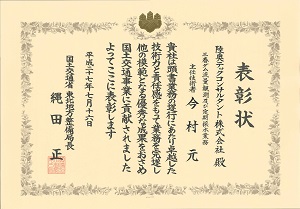 表彰状
陸奥テックコンサルタント株式会社 殿
三春ダム流量観測及び定期採水業務
主任技術者 今村 元
貴社は頭書業務の遂行にあたり卓越した
技術力と責任感をもって業務を完遂し
他の模範となる優秀な成果をおさめ
国土交通事業に貢献されました
よってここに表彰します
平成二十七年七月十六日
国土交通省 東北地方整備局長
縄田 正